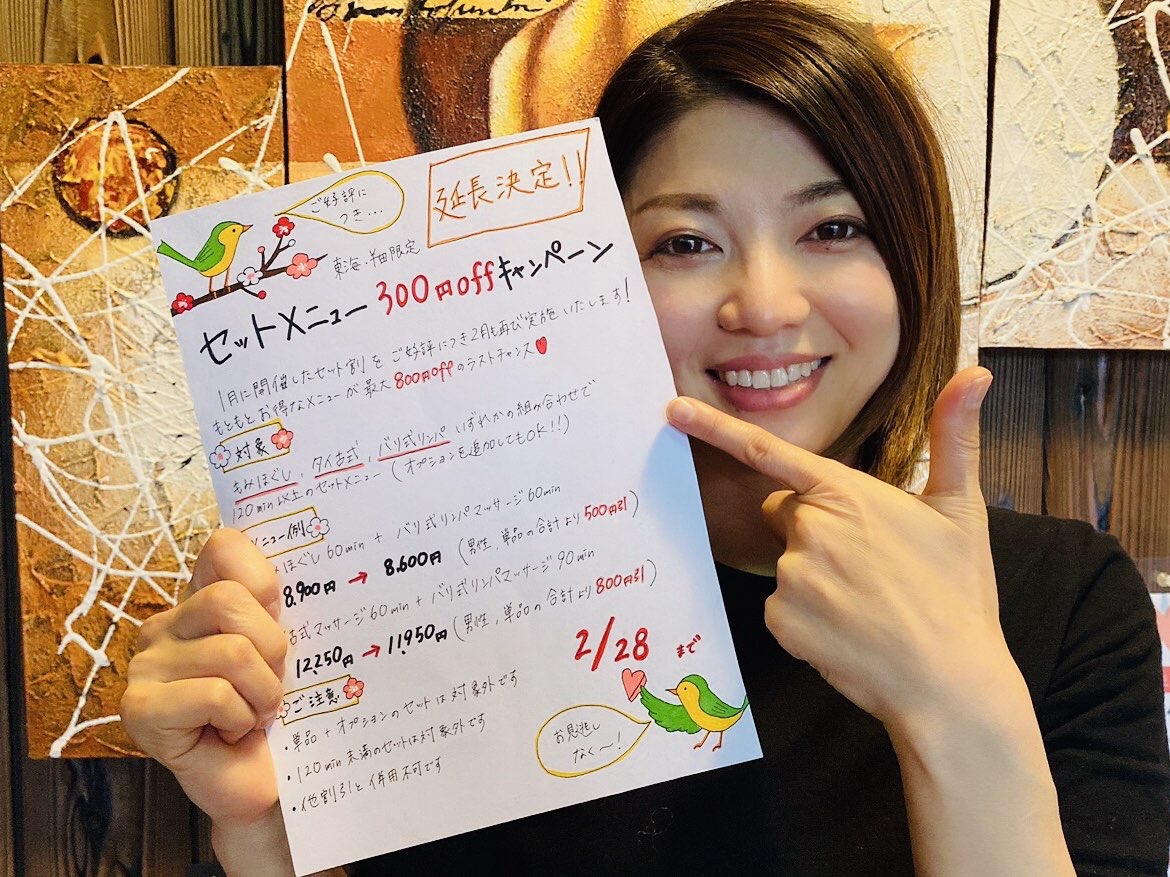 ご好評に
つき...
延長決定!!
東海・半田限定
セットメニュー 300円offキャンペーン
1月に開催したセット割を ご好評につき2月も再び実施いたします!
もともとお得なメニューが最大800円offのラストチャンス
対象
もみほぐし、タイ古式、バリ式リンパ いずれかの組み合わせで
120min以上のセットメニュー(オプションを追加してもOK!!)
メニュー例
ほぐし60min + バリ式リンパマッサージ60min
8,900円 → 8,600円 (男性、単品の合計より500円引)
古式マッサージ60min + バリ式リンパマッサージ90min
12,250円 → 11,950円 (男性、単品の合計より800円引)
2/28 まで
ご注意
・単品+オプションのセットは対象外です
・120min未満のセットは対象外です
・他割引と併用不可です
お見逃し
なく〜!